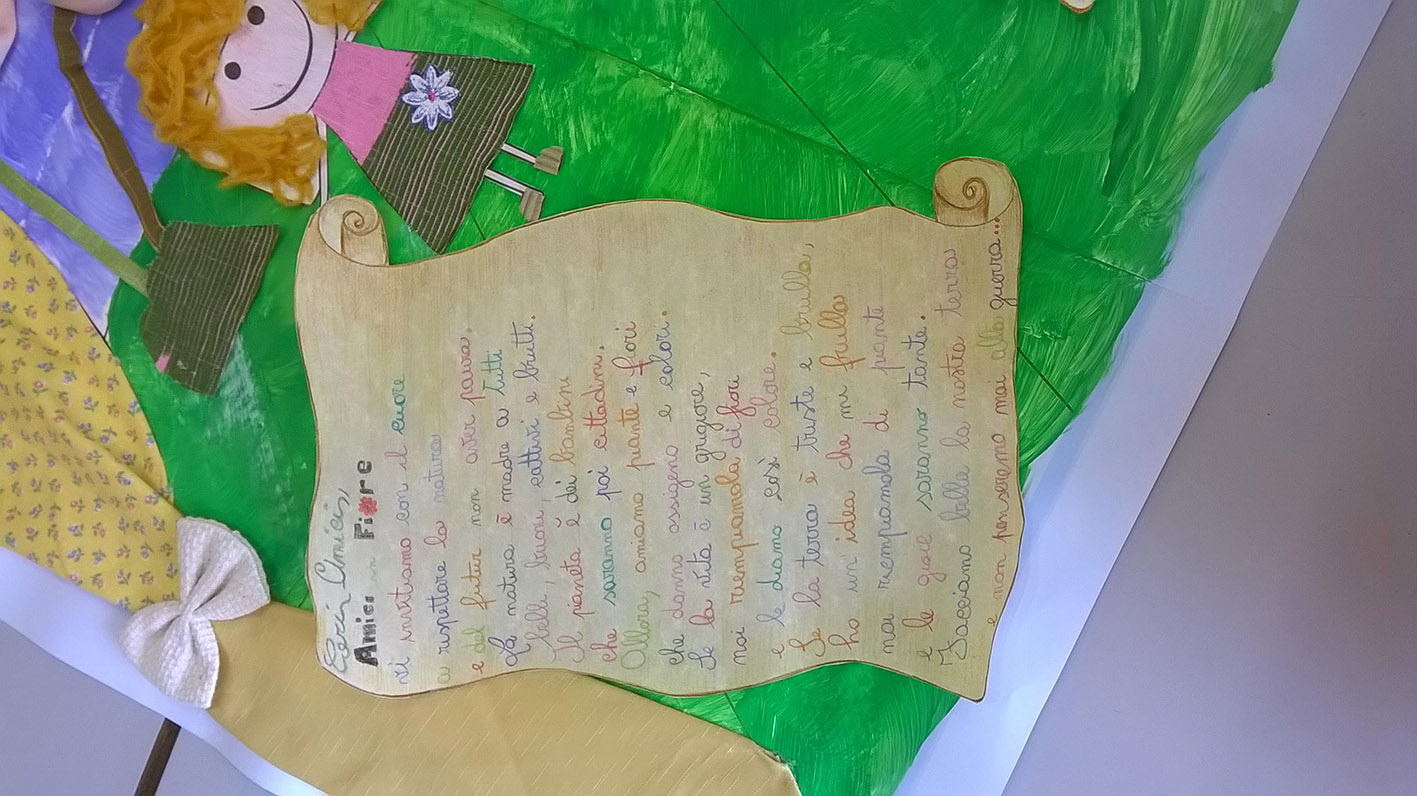 Cari Amici,
Amici in Fiore
vi invitiamo con il cuore
a rispettare la natura
e del futur non aver paura.
La natura è madre a tutti
belli, buoni, cattivi e brutti.
Il pianeta è dei bambini
che saranno poi cittadini.
Allora, amiamo piante e fiori
che danno ossigeno e colori.
Se la vita è un grigiore,
noi riempiamola di fiori
e le diamo così colore.
Se la terra è triste e brulla,
ho un'idea che mi frulla
noi riempiamola di piante
e le gioie saranno tante.
Facciamo bella la nostra terra
e non penseremo mai alla guerra...